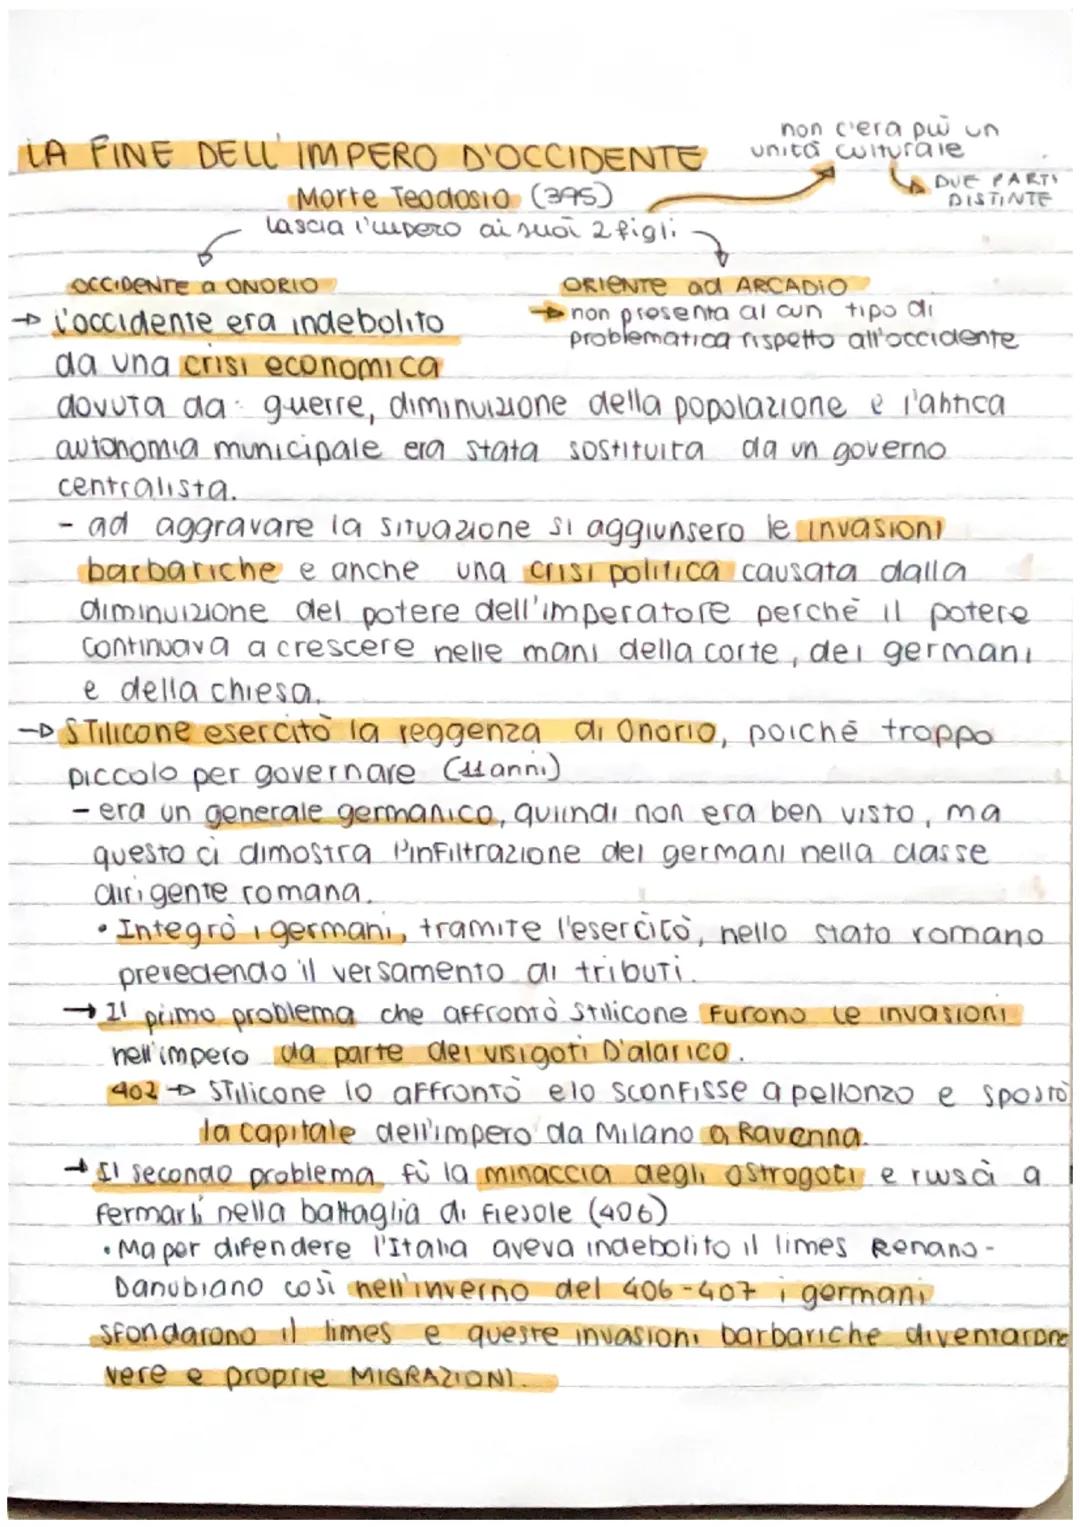 non c'era più un
unità culturale
LA FINE DELL'IMPERO D'OCCIDENTE
DUE PARTI
DISTINTE
Morte Teodosio (395)
lascia l'impero ai suoi 2 figli
OCCIDENTE a ONORIO
ORIENTE ad ARCADIO
→ l'occidente era indebolito
→ non presenta alcun tipo di
problematica rispetto all'occidente
da una crisi economica
dovuta da: guerre, diminuizione della popolazione e l'antica
autonomia municipale era stata sostituita da un governo
centralista.
- ad aggravare la situazione si aggiunsero le invasioni
barbariche e anche una crisi politica causata dalla
diminuizione del potere dell'imperatore perchè il potere
continuava a crescere nelle mani della corte, dei germani
e della chiesa.
→ STilicone esercitò la reggenza di Onorio, poichè troppo
piccolo per governare (11 anni)
- era un generale germanico, quindi non era ben visto, ma
questo ci dimostra l'infiltrazione dei germani nella classe
dirigente romana.
• Integrò i germani, tramite l'esercitò, nello stato romano
prevedendo il versamento di tributi.
→ Il primo problema che affrontò Stilicone furono le invasioni
nell'impero da parte dei visigoti D'alarico.
402 → STilicone lo affrontò e lo sconfisse a pollonzo e spostò
la capitale dell'impero da Milano a Ravenna.
→ Il secondo problema fù la minaccia degli ostrogoti e riuscì a
fermarli nella battaglia di Fiesole (406)
• Ma per difendere l'Italia aveva indebolito il limes Renano-
Danubiano così nell'inverno del 406-407 i germani
sfondarono il limes e queste invasioni barbariche diventarono
vere e proprie MIGRAZIONI.